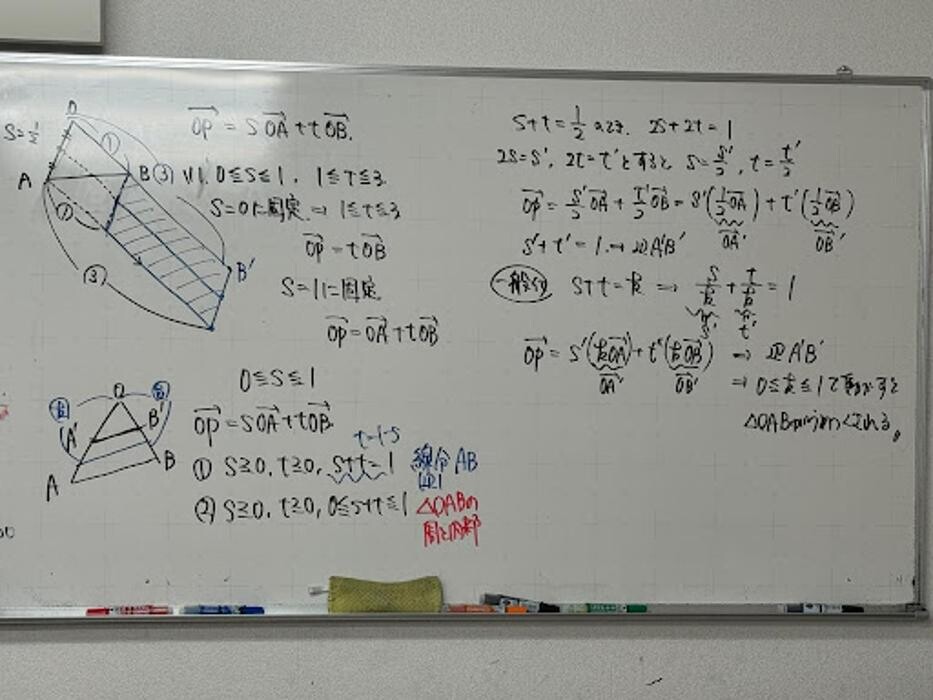 O
S=1/2
①
A
B ③
①
③
B'
OP→ = SOA→ + tOB→.
0≦S≦1, 1≦t≦3.
S=0に固定 → 1≦t≦3
OP→ = tOB→
S=1に固定
OP→ = OA→ + tOB→
O
A'
B'
A
B
0≦S≦1
OP→ = SOA→ + tOB→
t=1-S
① S≧0, t≧0, S+t=1 線分AB
② S≧0, t≧0, 0≦S+t≦1 △OABの
周と内部
S+t=1/2 のとき. 2S+2t=1
2S=S', 2t=t'とすると S=S'/2, t=t'/2
OP→ = S'/2 OA→ + t'/2 OB→ = S'(1/2 OA→) + t'(1/2 OB→)
OA'→ OB'→
S'+t'=1. → 辺A'B'
一般に S+t=k → S/k + t/k = 1
S' t'
OP→ = S'(kOA→) + t'(kOB→) → 辺A'B'
OA'→ OB'→
⇒ 0≦k≦1で動かすと
△OAB